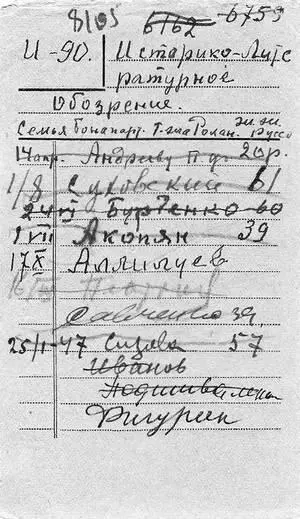 8/105 6162 6753
И-90. Историко-Лите
ратурное
Обозрение.
Семья Бонапарт. Т-ша Ролан. Ж.Ж. Руссо
14 апр. Андрееву 20р.
1/8 Суховский 61
24 VI Бурденко 60
1 VII Акопян 39
17 X Аллилуев
Савченко 39
25/I-47 57
Иванов
Фигурин